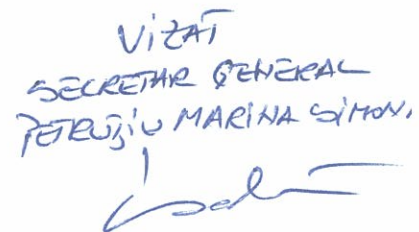 VIZAT
SECRETAR GENERAL
PETRUȚIU MARINA SIMON.